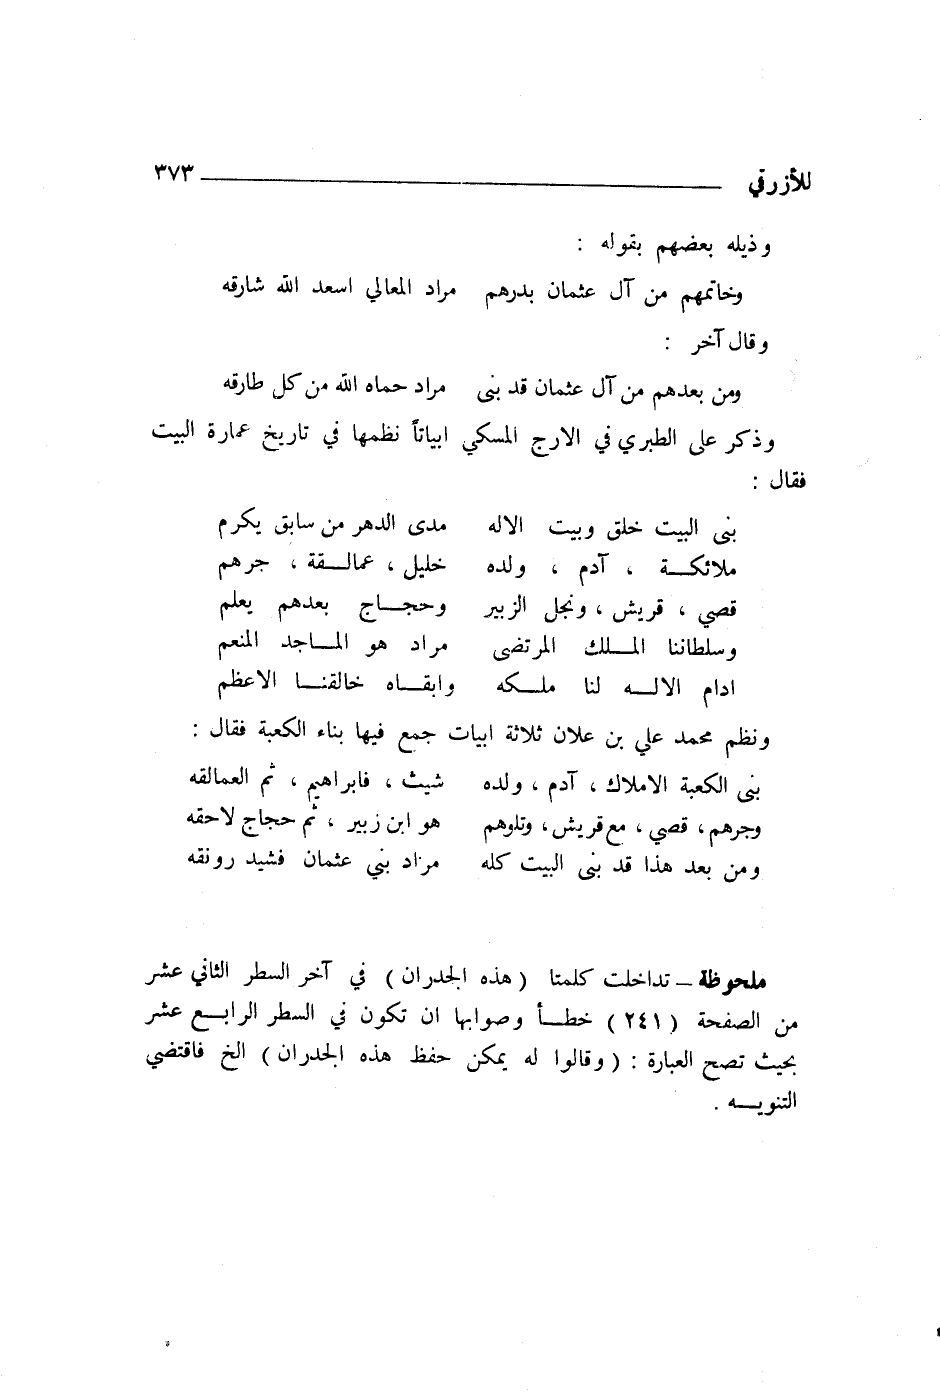 للأزرقي ٣٧٣
وذيله بعضهم بقوله :
وخاتمهم من آل عثمان بدرهم مراد المعالي اسعد الله شارقه
وقال آخر :
ومن بعدهم من آل عثمان قد بنى مراد حماه الله من كل طارقه
وذكر على الطبري في الارج المسكي ابياتاً نظمها في تاريخ عمارة البيت
فقال :
بنى البيت خلق وبيت الاله مدى الدهر من سابق يكرم
ملائكة ، آدم ، ولده خليل ، عمالقة ، جرهم
قصي ، قريش ، ونجل الزبير وحجاج بعدهم يعلم
وسلطاننا الملك المرتضى مراد هو الماجد المنعم
ادام الاله لنا ملكه وابقاه خالقنا الاعظم
ونظم محمد علي بن علان ثلاثة ابيات جمع فيها بناء الكعبة فقال :
بنى الكعبة الاملاك ، آدم ، ولده شيث ، فابراهيم ، ثم العمالقه
وجرهم ، قصي ، مع قريش ، وتلوهم هو ابن زبير ، ثم حجاج لاحقه
ومن بعد هذا قد بنى البيت كله مراد بني عثمان فشيد رونقه
ملحوظة – تداخلت كلمتا ( هذه الجدران ) في آخر السطر الثاني عشر
من الصفحة ( ٢٤١ ) خطأ وصوابها ان تكون في السطر الرابع عشر
بحيث تصح العبارة : ( وقالوا له يمكن حفظ هذه الجدران ) الخ فاقتضي
التنويه .